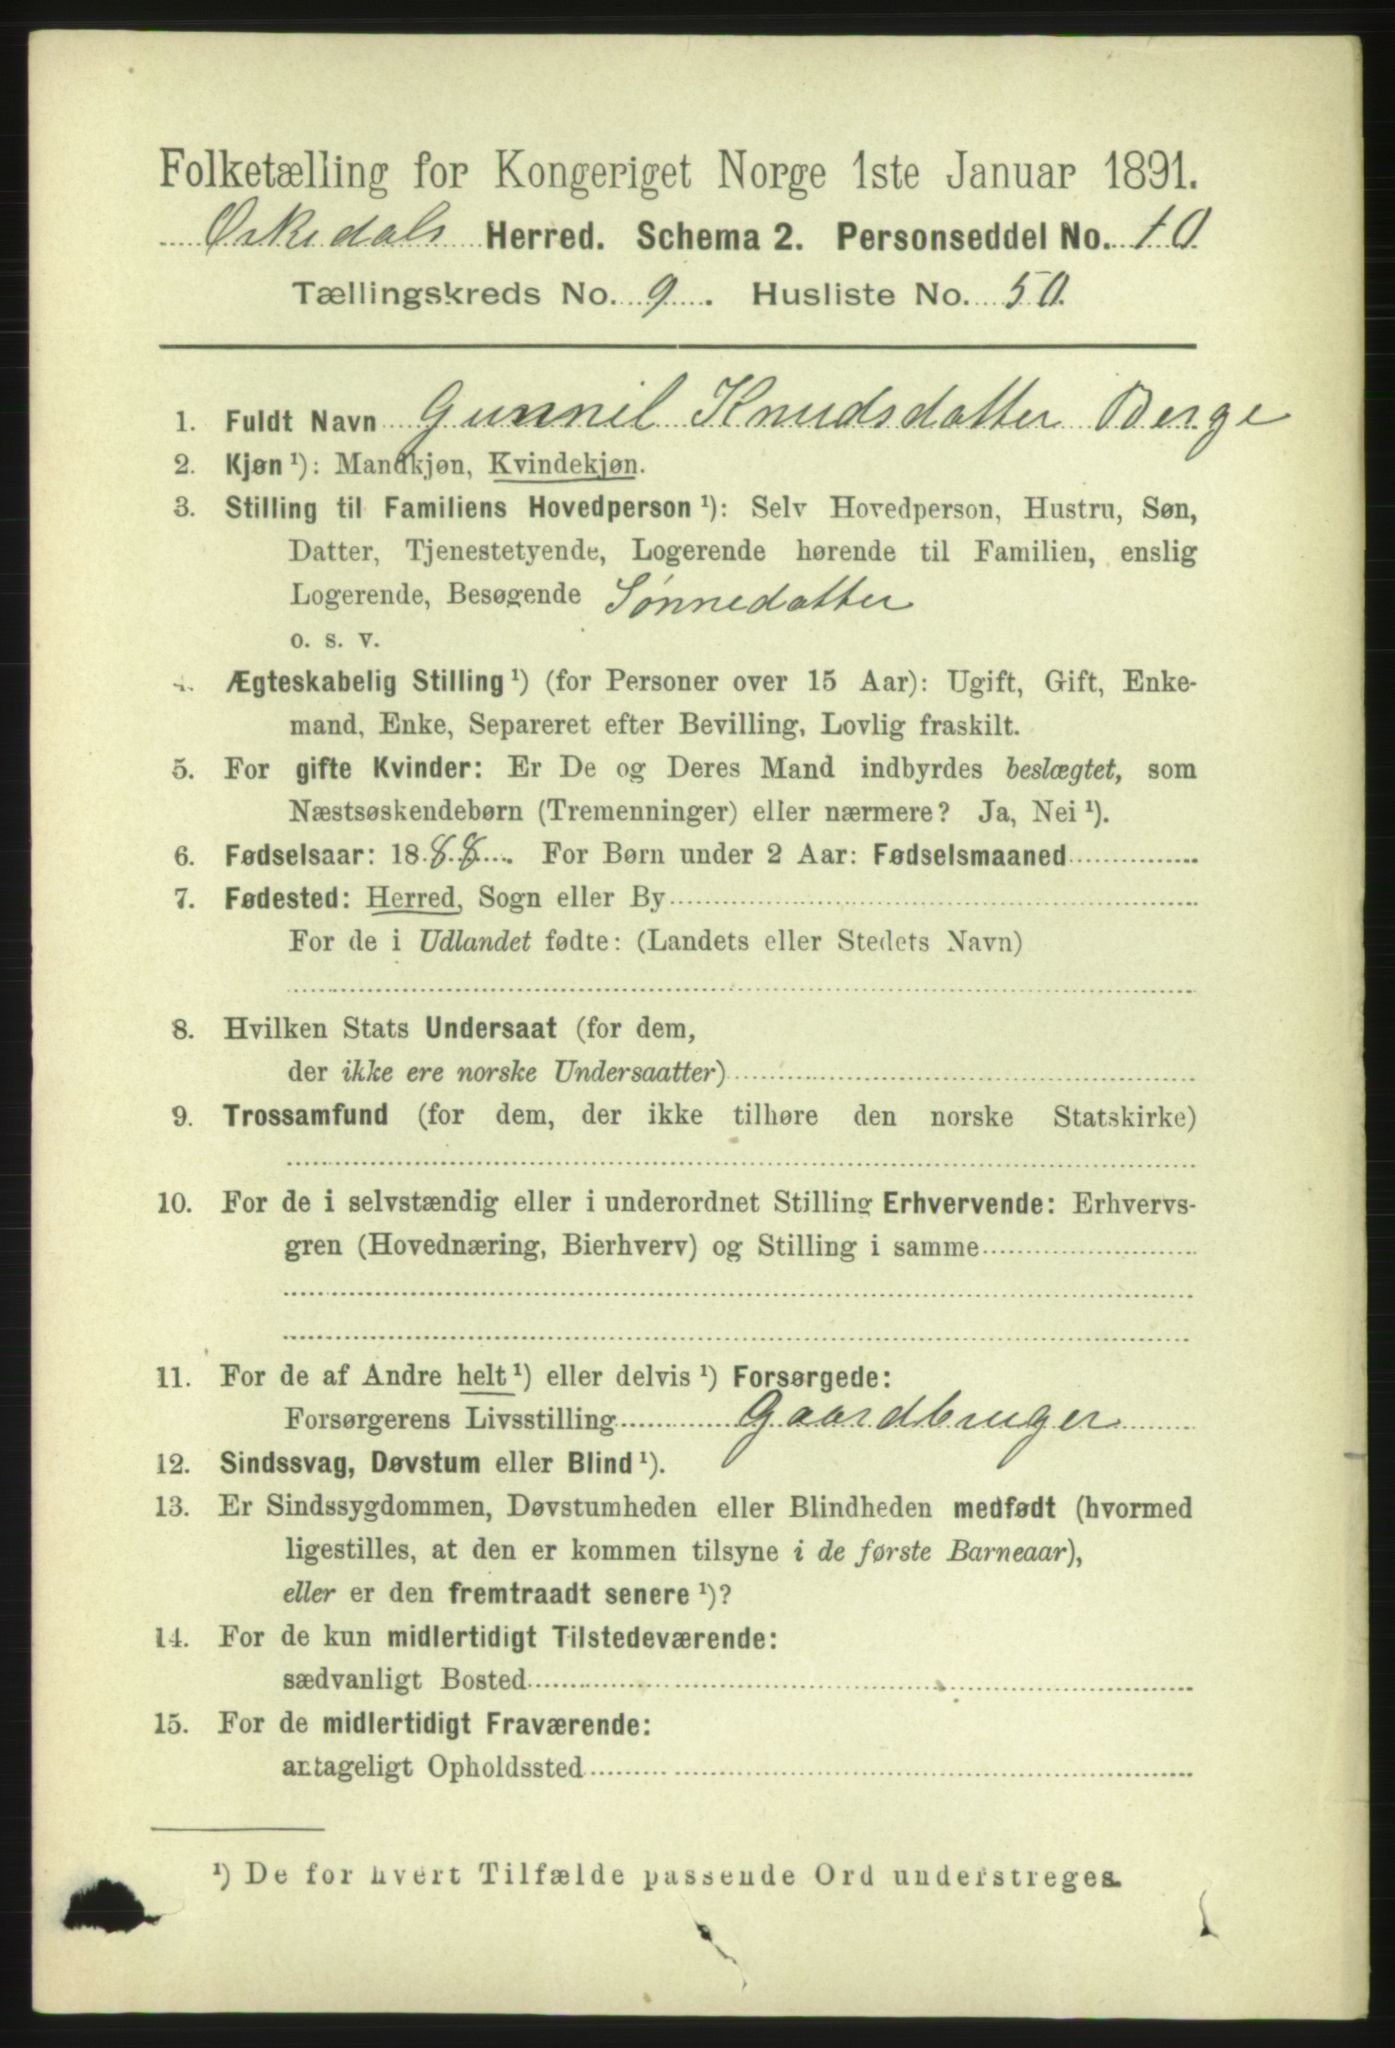 Folketælling for Kongeriget Norge 1ste Januar 1891.
Orkedals Herred. Schema 2. Personseddel No. 10
Tællingskreds No. 9. Husliste No. 50
1. Fuldt Navn Gunnil Knudsdatter Berge
2. Kjøn ¹): Mandkjøn, Kvindekjøn.
3. Stilling til Familiens Hovedperson ¹): Selv Hovedperson, Hustru, Søn,
Datter, Tjenestetyende, Logerende hørende til Familien, enslig
Logerende, Besøgende Sønnedatter
o. s. v.
4. Ægteskabelig Stilling ¹) (for Personer over 15 Aar): Ugift, Gift, Enke-
mand, Enke, Separeret efter Bevilling, Lovlig fraskilt.
5. For gifte Kvinder: Er De og Deres Mand indbyrdes beslægtet, som
Næstsøskendebørn (Tremenninger) eller nærmere? Ja, Nei ¹).
6. Fødselsaar: 1888. For Børn under 2 Aar: Fødselsmaaned
7. Fødested: Herred, Sogn eller By
For de i Udlandet fødte: (Landets eller Stedets Navn)
8. Hvilken Stats Undersaat (for dem,
der ikke ere norske Undersaatter)
9. Trossamfund (for dem, der ikke tilhøre den norske Statskirke)
10. For de i selvstændig eller i underordnet Stilling Erhvervende: Erhvervs-
gren (Hovednæring, Bierhverv) og Stilling i samme
11. For de af Andre helt ¹) eller delvis ¹) Forsørgede:
Forsørgerens Livsstilling Gaardbruger
12. Sindssvag, Døvstum eller Blind ¹).
13. Er Sindssygdommen, Døvstumheden eller Blindheden medfødt (hvormed
ligestilles, at den er kommen tilsyne i de første Barneaar),
eller er den fremtraadt senere ¹)?
14. For de kun midlertidigt Tilstedeværende:
sædvanligt Bosted
15. For de midlertidigt Fraværende:
antageligt Opholdssted
¹) De for hvert Tilfælde passende Ord understreges.